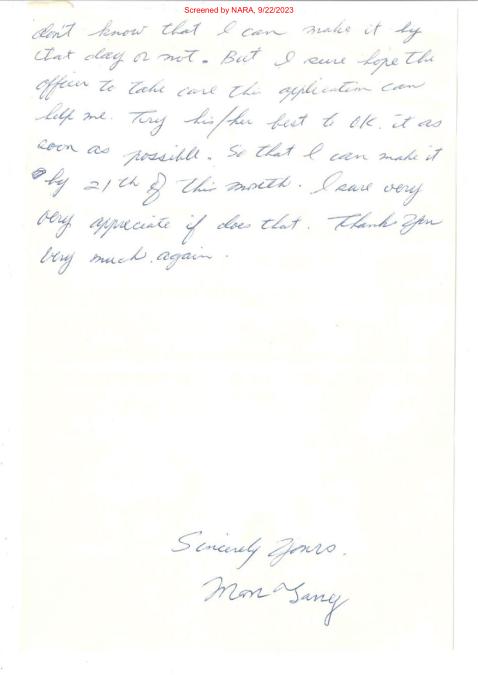 Screened by NARA, 9/22/2023
don't know that I can make it by
that day or not. But I sure hope the
officer to take care this application can
help me. Try his/her best to OK. it as
soon as possible. So that I can make it
by 21th of this month. I sure very
very appreciate if does that. Thank You
very much again.
Sincerely Yours.